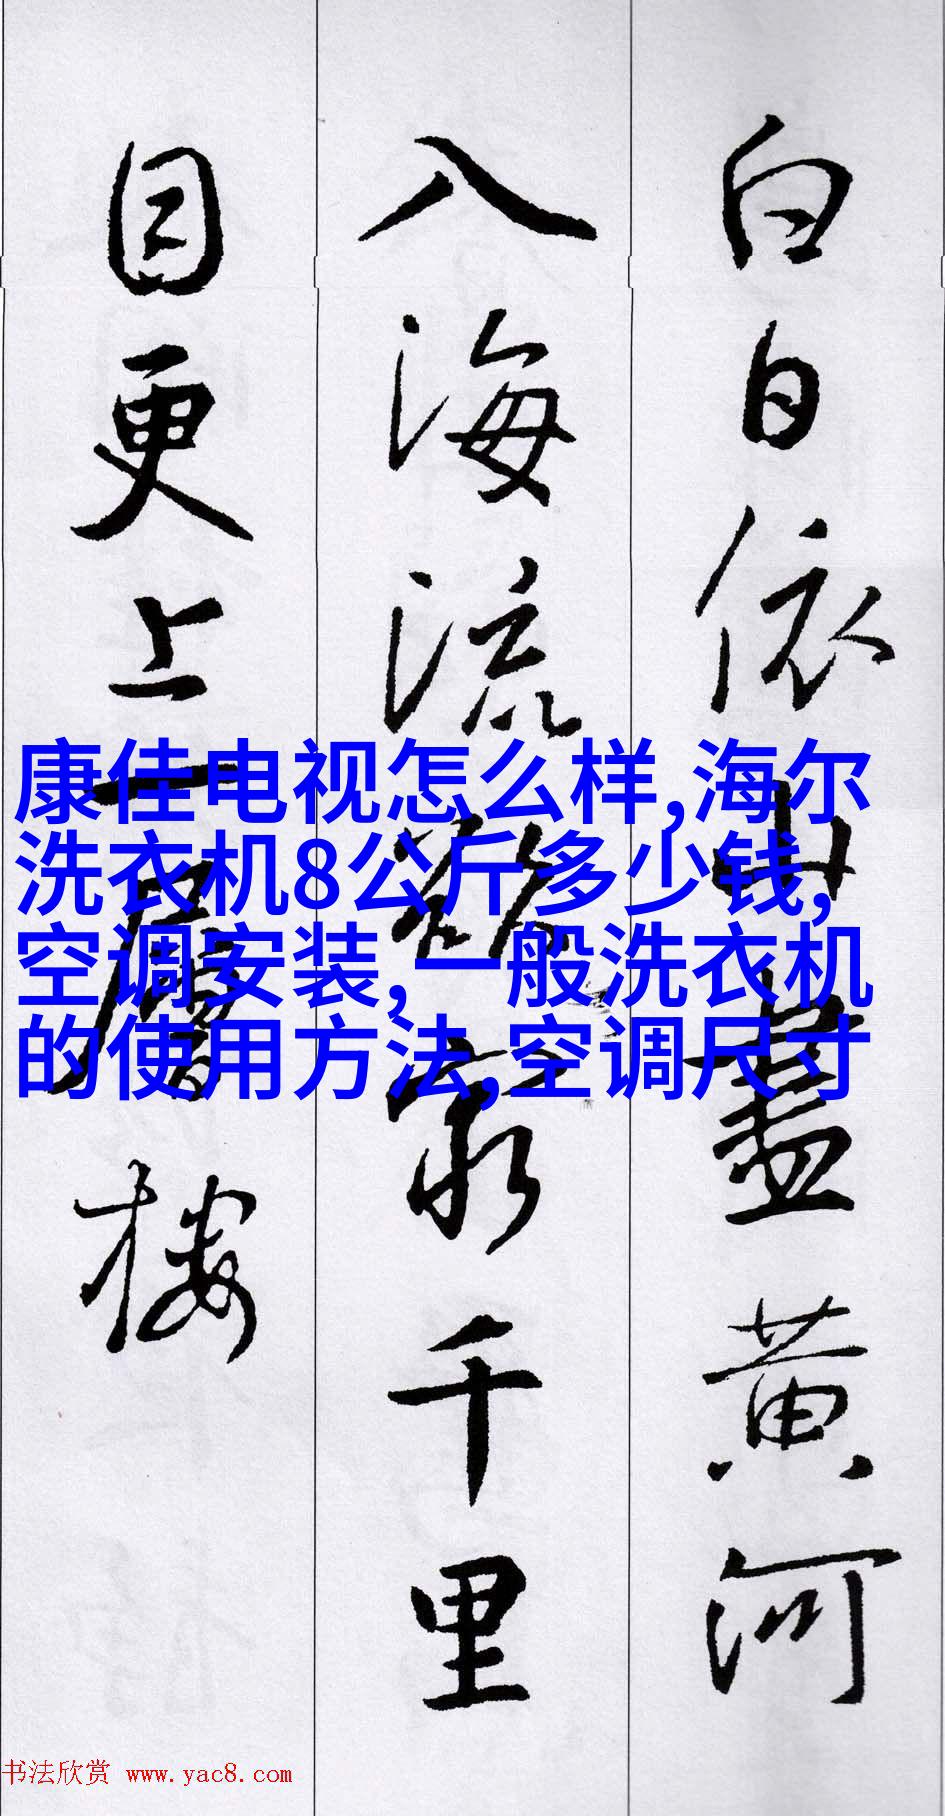 白日依山盡黄河
入海流欲窮千里
目更上一層樓
康佳电视怎么样,海尔
洗衣机8公斤多少钱,
空调安装,一般洗衣机
的使用方法,空调尺寸
书法欣赏 www.yac8.com